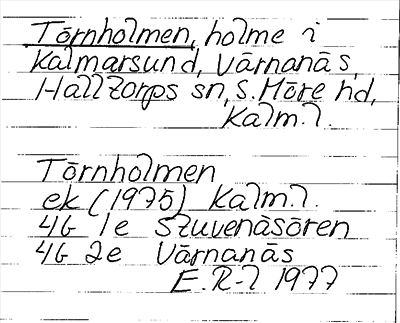 Törnholmen, holme i
Kalmarsund, Värnanäs,
Halltorps sn, S. Möre hd,
Kalm.l.
Törnholmen
ek (1975) Kalm.l.
4G 1e Stuvenäsören
4G 2e Värnanäs
E. R-l 1977